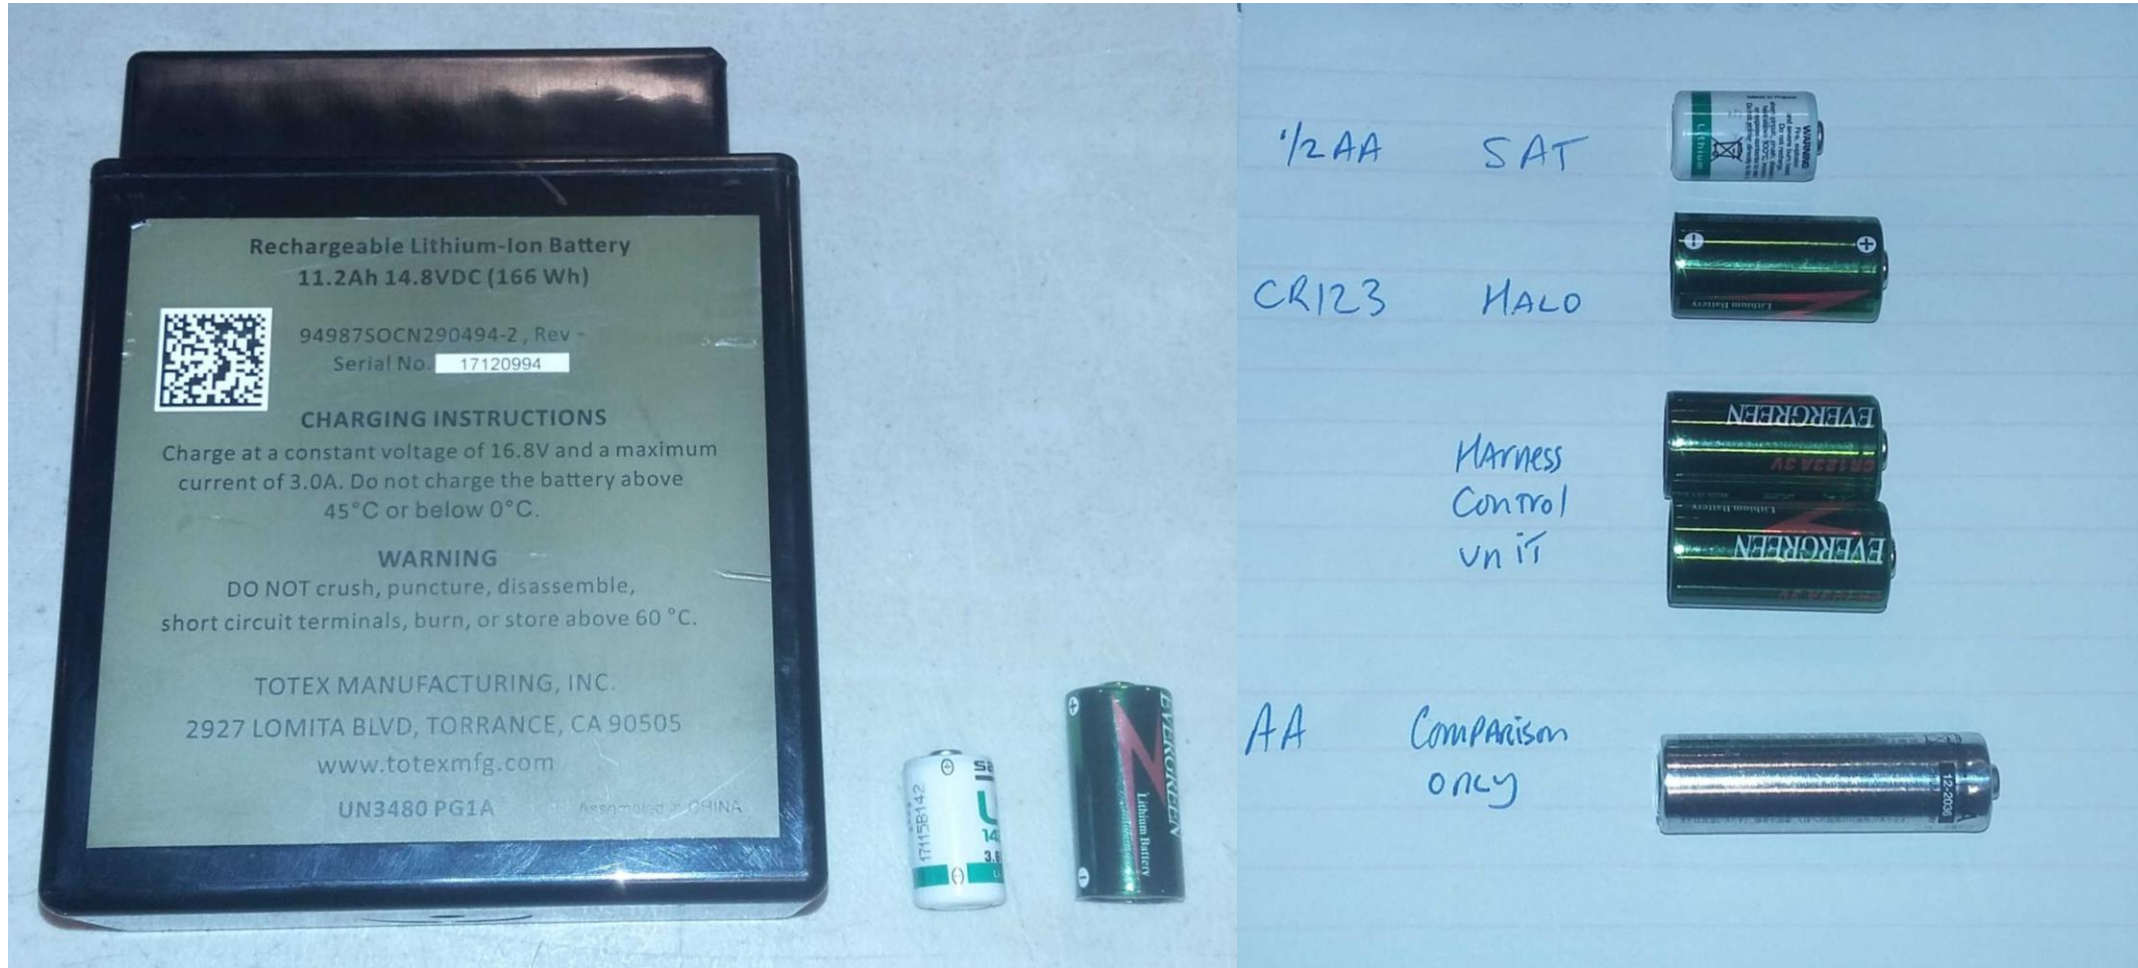 Rechargeable Lithium-Ion Battery
11.2Ah 14.8VDC (166 Wh)
94987SOCN290494-2 , Rev -
Serial No. 17120994
CHARGING INSTRUCTIONS
Charge at a constant voltage of 16.8V and a maximum
current of 3.0A. Do not charge the battery above
45°C or below 0°C.
WARNING
DO NOT crush, puncture, disassemble,
short circuit terminals, burn, or store above 60 °C.
TOTEX MANUFACTURING, INC.
2927 LOMITA BLVD, TORRANCE, CA 90505
www.totexmfg.com
UN3480 PG1A Assembled in CHINA
17115B142
EVERGREEN
Lithium Battery
1/2 AA SAT
WARNING
Lithium
CR123 HALO
Lithium Battery
Harness
Control
unit
EVERGREEN
CR123A 3V
Lithium Battery
EVERGREEN
CR123A 3V
AA Comparison
only
12-2036